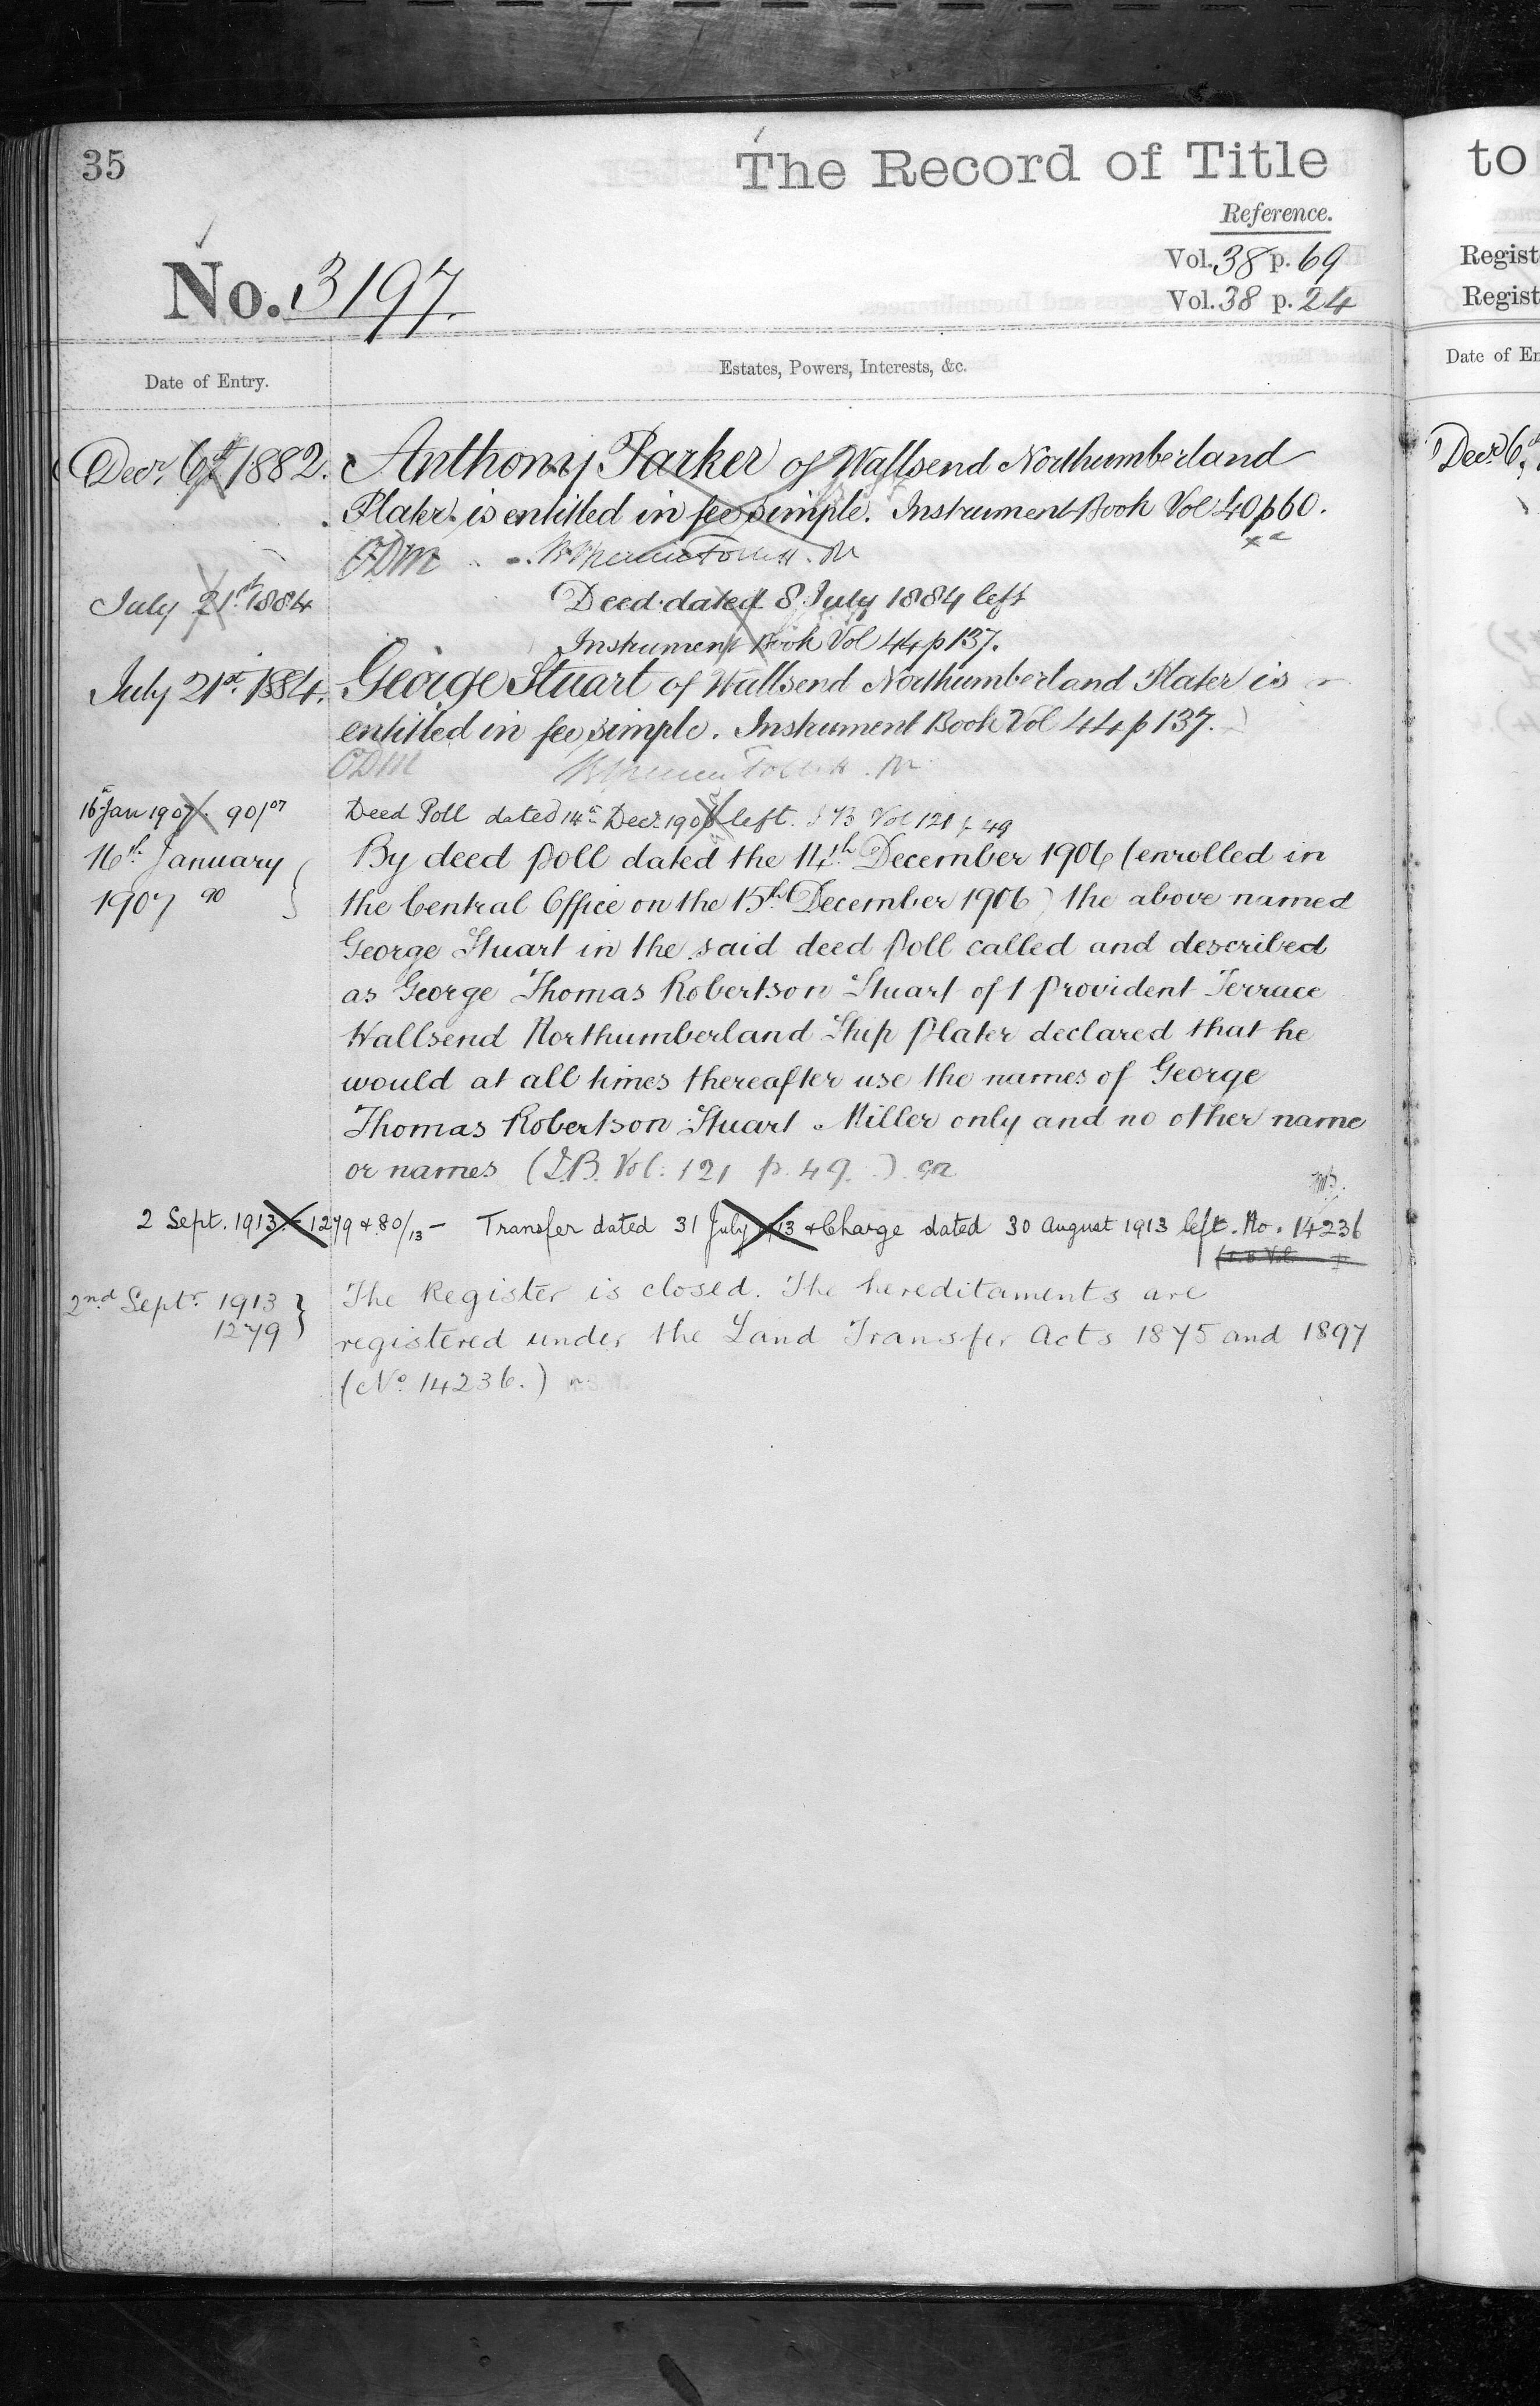 35
The Record of Title
Reference.
Vol. 38 p. 69
Vol. 38 p. 24
No. 3197.
Date of Entry.
Estates, Powers, Interests, &c.
Decr. 6th 1882. Anthony Parker of Wallsend Northumberland
Plater is entitled in fee simple. Instrument Book Vol 40 p 60.
ODM
July 21st 1884 Deed dated 8 July 1884 left
Instrument Book Vol 44 p 137.
July 21st 1884. George Stuart of Wallsend Northumberland Plater is
entitled in fee simple. Instrument Book Vol 44 p 137.
ODM
16th Jan 1907. 90/07 Deed Poll dated 14th Decr. 1906 left. I B Vol 121 p 49
16th January By deed poll dated the 14th December 1906 (enrolled in
1907 90 } the Central Office on the 15th December 1906) the above named
George Stuart in the said deed poll called and described
as George Thomas Robertson Stuart of 1 Provident Terrace
Wallsend Northumberland Ship Plater declared that he
would at all times thereafter use the names of George
Thomas Robertson Stuart Miller only and no other name
or names (I.B. Vol. 121 p. 49.)
2 Sept. 1913 - 1279 & 80/13 - Transfer dated 31 July 1913 & Charge dated 30 August 1913 left. No. 14236
2nd Septr 1913 } The Register is closed. The hereditaments are
1279 registered under the Land Transfer Acts 1875 and 1897
(No 14236.)
to
Regist
Regist
Date of En
Decr 6th